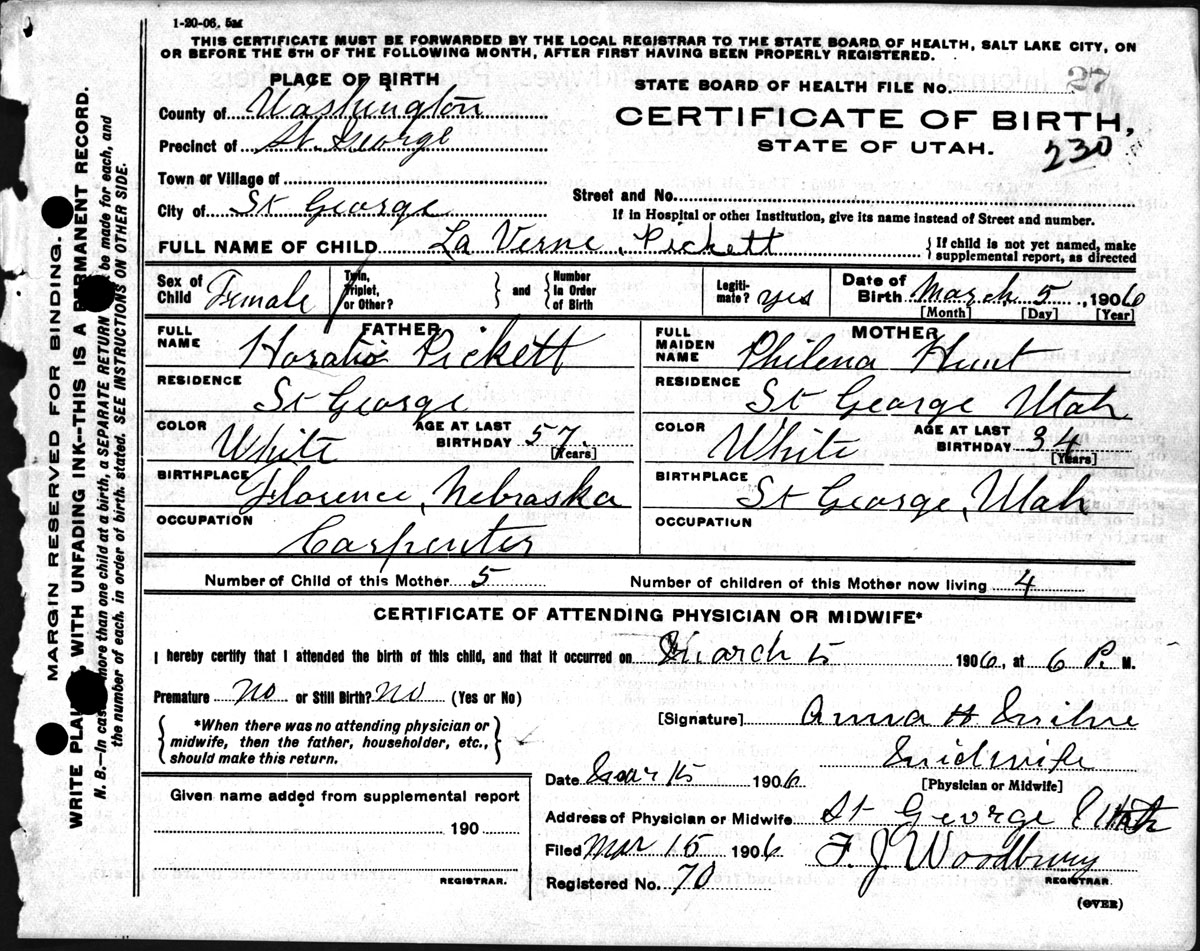 1-20-06. 5M
THIS CERTIFICATE MUST BE FORWARDED BY THE LOCAL REGISTRAR TO THE STATE BOARD OF HEALTH, SALT LAKE CITY, ON
OR BEFORE THE 5TH OF THE FOLLOWING MONTH, AFTER FIRST HAVING BEEN PROPERLY REGISTERED.
PLACE OF BIRTH
STATE BOARD OF HEALTH FILE No. 27
County of Washington
CERTIFICATE OF BIRTH,
Precinct of St. George
STATE OF UTAH.
230
Town or Village of
Street and No.
City of St George
If in Hospital or other Institution, give its name instead of Street and number.
FULL NAME OF CHILD La Verne Pickett
{ If child is not yet named, make
supplemental report, as directed
Sex of Child Female
Twin, Triplet, or Other? } and { Number in Order of Birth
Legiti-mate? yes
Date of Birth March 5, 1906
[Month] [Day] [Year]
FATHER
FULL NAME Horatio Pickett
RESIDENCE St George
COLOR White AGE AT LAST BIRTHDAY 57. [Years]
BIRTHPLACE Florence, Nebraska
OCCUPATION Carpenter
MOTHER
FULL MAIDEN NAME Philena Hunt
RESIDENCE St George Utah
COLOR White AGE AT LAST BIRTHDAY 34 [Years]
BIRTHPLACE St George, Utah
OCCUPATION
Number of Child of this Mother 5 Number of children of this Mother now living 4
CERTIFICATE OF ATTENDING PHYSICIAN OR MIDWIFE*
I hereby certify that I attended the birth of this child, and that it occurred on March 5 1906, at 6 P. M.
Premature no or Still Birth? no (Yes or No)
{ *When there was no attending physician or
midwife, then the father, householder, etc.,
should make this return. }
[Signature] Anna H Milne
Midwife
[Physician or Midwife]
Date Mar 15 1906
Address of Physician or Midwife St George Utah
Filed Mar 15 1906 F. J. Woodbury
REGISTRAR
Registered No. 70
(OVER)
Given name added from supplemental report
190
REGISTRAR.
MARGIN RESERVED FOR BINDING.
WRITE PLAINLY, WITH UNFADING INK--THIS IS A PERMANENT RECORD.
N. B.--In case more than one child at a birth, a SEPARATE RETURN be made for each, and
the number of each, in order of birth, stated. SEE INSTRUCTIONS ON OTHER SIDE.